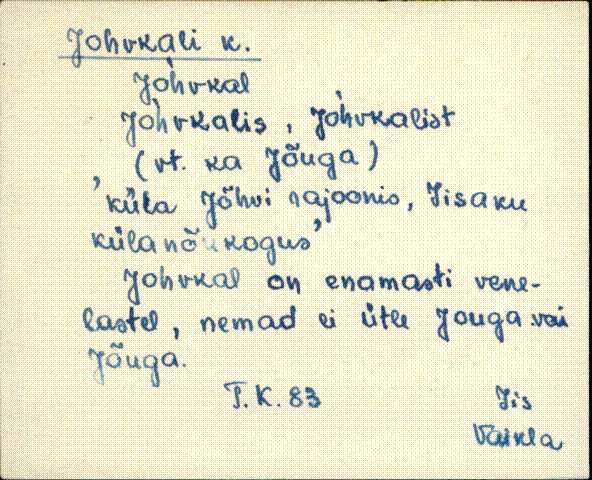 Johvkali k.
Jo̍hvkal
Jo̍hvkalis, Jo̍hvkalist
(vt. ka Jõuga)
'küla Jõhvi rajoonis, Iisaku
külanõukogus'
Johvkal on enamasti vene-
lastel, nemad ei ütle Jouga vai
Jõuga.
T.K. 83 Iis
Vaikla